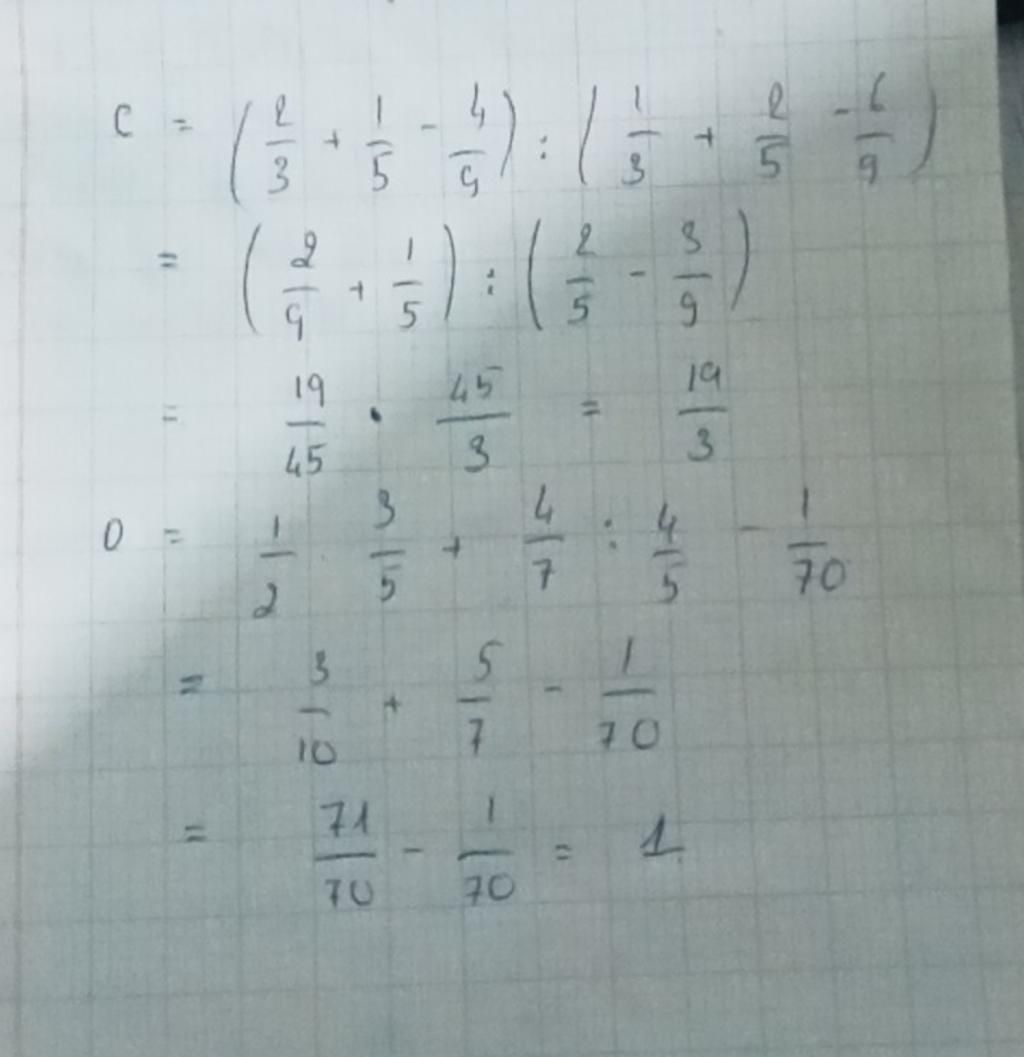 C = (2/3 + 1/5 - 4/9) : (1/3 + 2/5 - 6/9)
= (2/9 + 1/5) : (2/5 - 3/9)
= 19/45 . 45/3 = 19/3
D = 1/2 . 3/5 + 4/7 : 4/5 - 1/70
= 3/10 + 5/7 - 1/70
= 71/70 - 1/70 = 1